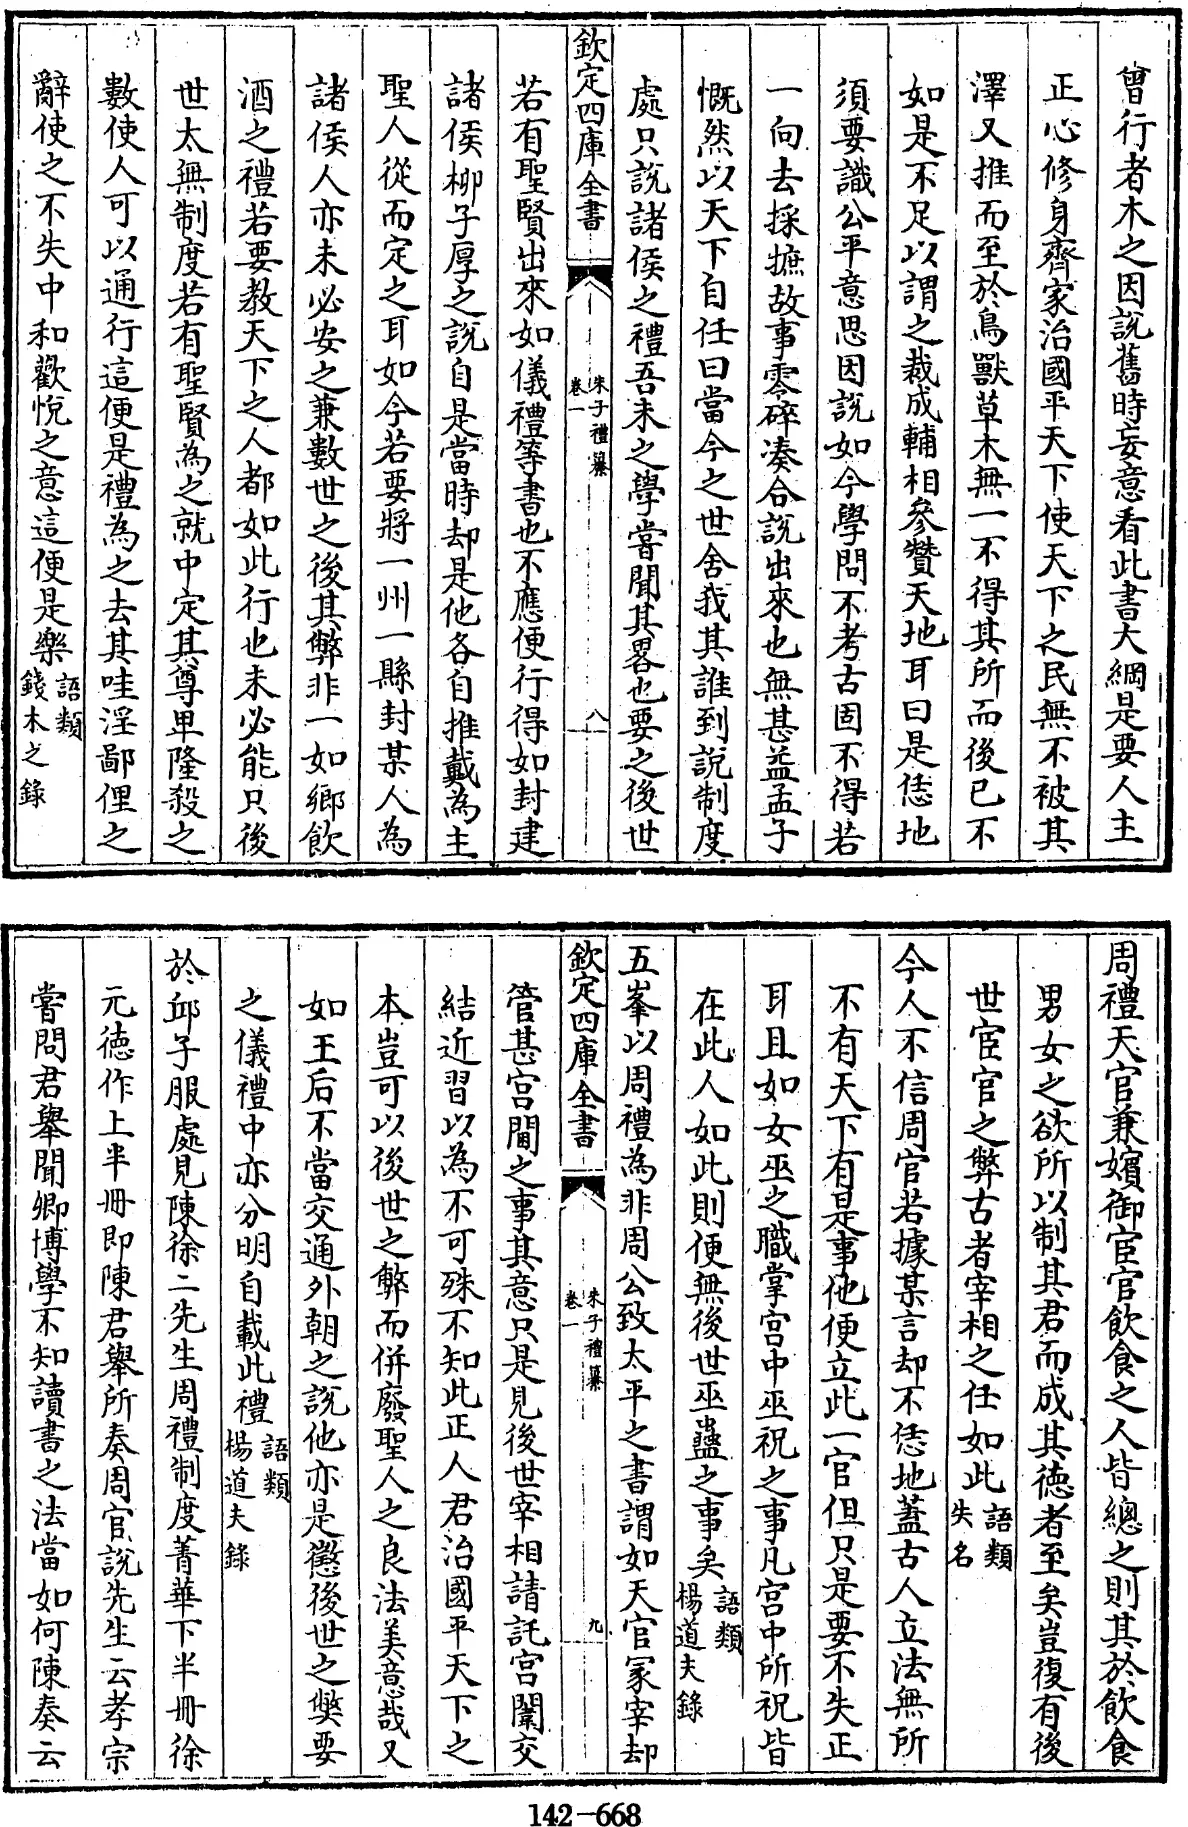 曾行者木之因說舊時妄意看此書大綱是要人主
正心修身齊家治國平天下使天下之民無不被其
澤又推而至於鳥獸草木無一不得其所而後已不
如是不足以謂之裁成輔相參贊天地耳曰是恁地
須要識公平意思因說如今學問不考古固不得若
一向去採摭故事零碎湊合說出來也無甚益孟子
慨然以天下自任曰當今之世舍我其誰到說制度
處只說諸侯之禮吾未之學嘗聞其畧也要之後世
欽定四庫全書
朱子禮纂
卷一
八
若有聖賢出來如儀禮等書也不應便行得如封建
諸侯柳子厚之說自是當時却是他各自推戴為主
聖人從而定之耳如今若要將一州一縣封某人為
諸侯人亦未必安之兼數世之後其弊非一如鄉飲
酒之禮若要教天下之人都如此行也未必能只後
世太無制度若有聖賢為之就中定其尊卑隆殺之
數使人可以通行這便是禮為之去其哇淫鄙俚之
辭使之不失中和歡悅之意這便是樂語類
錢木之錄
周禮天官兼嬪御宦官飲食之人皆總之則其於飲食
男女之欲所以制其君而成其德者至矣豈復有後
世宦官之弊古者宰相之任如此語類
失名
今人不信周官若據某言却不恁地蓋古人立法無所
不有天下有是事他便立此一官但只是要不失正
耳且如女巫之職掌宮中巫祝之事凡宮中所祝皆
在此人如此則便無後世巫蠱之事矣語類
楊道夫錄
五峯以周禮為非周公致太平之書謂如天官冢宰却
欽定四庫全書
朱子禮纂
卷一
九
管甚宮閫之事其意只是見後世宰相請託宮闈交
結近習以為不可殊不知此正人君治國平天下之
本豈可以後世之弊而併廢聖人之良法美意哉又
如王后不當交通外朝之說他亦是懲後世之弊要
之儀禮中亦分明自載此禮語類
楊道夫錄
於邱子服處見陳徐二先生周禮制度菁華下半冊徐
元德作上半冊即陳君舉所奏周官說先生云孝宗
嘗問君舉聞卿博學不知讀書之法當如何陳奏云
142-668